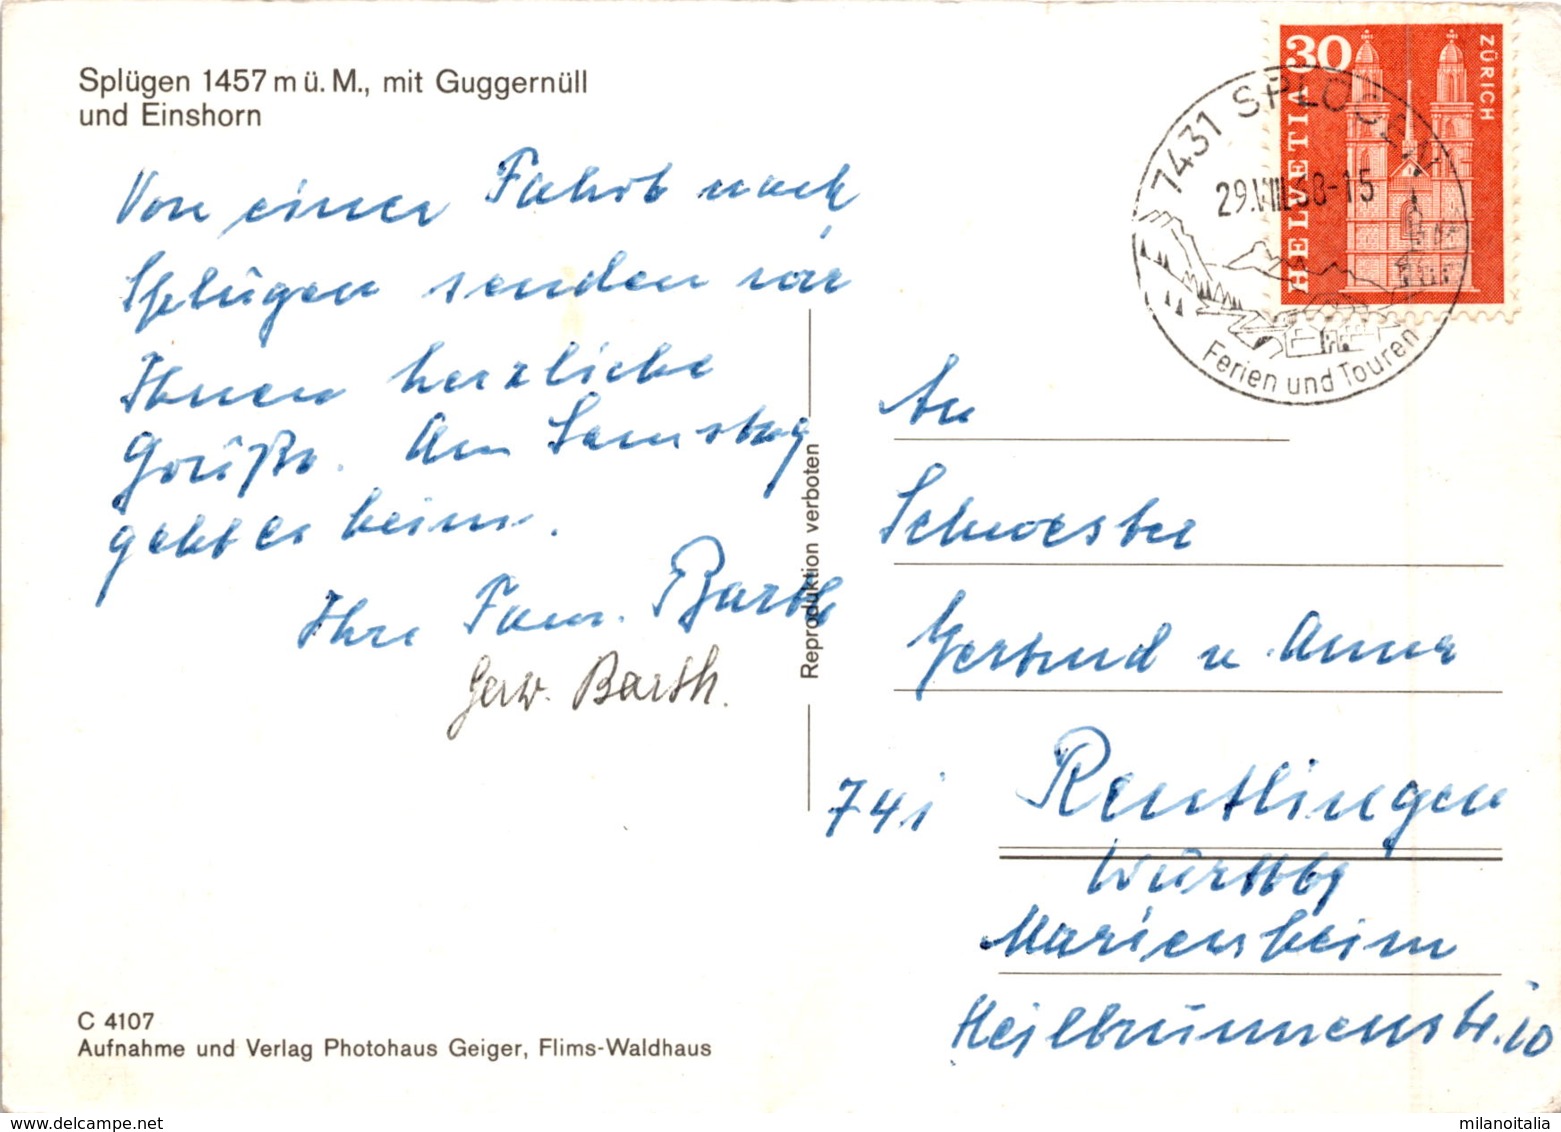 Splügen 1457 m ü. M., mit Guggernüll
und Einshorn
Von einer Fahrt nach
Splügen senden wir
Ihnen herzliche
Grüße. Am Samstag
geht es heim.
Ihre Fam. Barth
Gerw. Barth.
C 4107
Aufnahme und Verlag Photohaus Geiger, Flims-Waldhaus
Reproduktion verboten
30
HELVETIA
ZÜRICH
7431 SPLÜGEN
29.VIII.68-15
Ferien und Touren
An
Schwester
Gertrud u. Anna
741 Reutlingen
Württbg
Mariensheim
Heilbrunnenstr. 10
milanoitalia